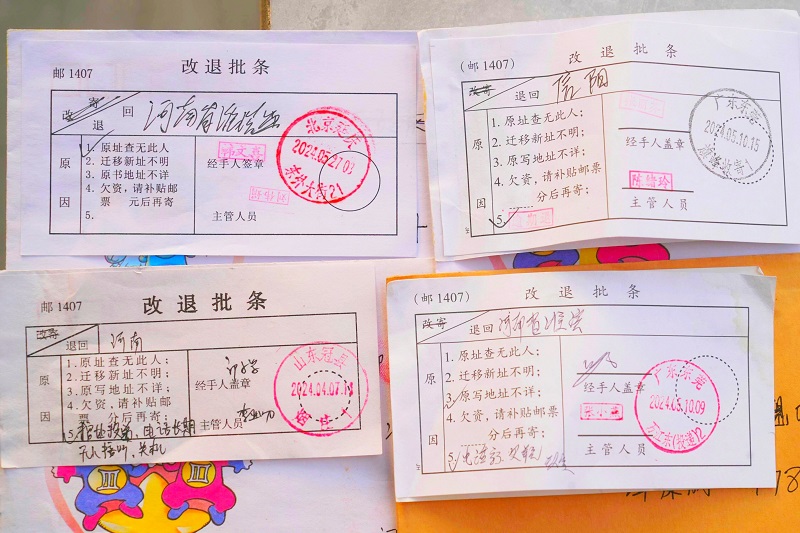 邮 1407
改退批条
改寄
退
回
河南省
原
因
1. 原址查无此人；
2. 迁移新址不明；
3. 原书地址不详；
4. 欠资，请补贴邮
票 元后再寄
5.
经手人签章
主管人员
北京
2024.05.27
(邮 1407)
改退批条
改寄
退回
信阳
原
因
1. 原址查无此人；
2. 迁移新址不明；
3. 原写地址不详；
4. 欠资，请补贴邮票
分后再寄；
5.
经手人盖章
主管人员
广东东莞
2024.05.10.15
邮 1407
改退批条
改寄
退回
河南
原
因
1. 原址查无此人；
2. 迁移新址不明；
3. 原写地址不详；
4. 欠资，请补贴邮
票 分后再寄；
5. 电话长期
无人接听、关机
经手人盖章
主管人员
山东冠县
2024.04.07
(邮 1407)
改退批条
改寄
退回
原
因
1. 原址查无此人；
2. 迁移新址不明；
3. 原写地址不详；
4. 欠资，请补贴邮票
分后再寄；
5.
经手人盖章
主管人员
广东东莞
2024.05.10.09